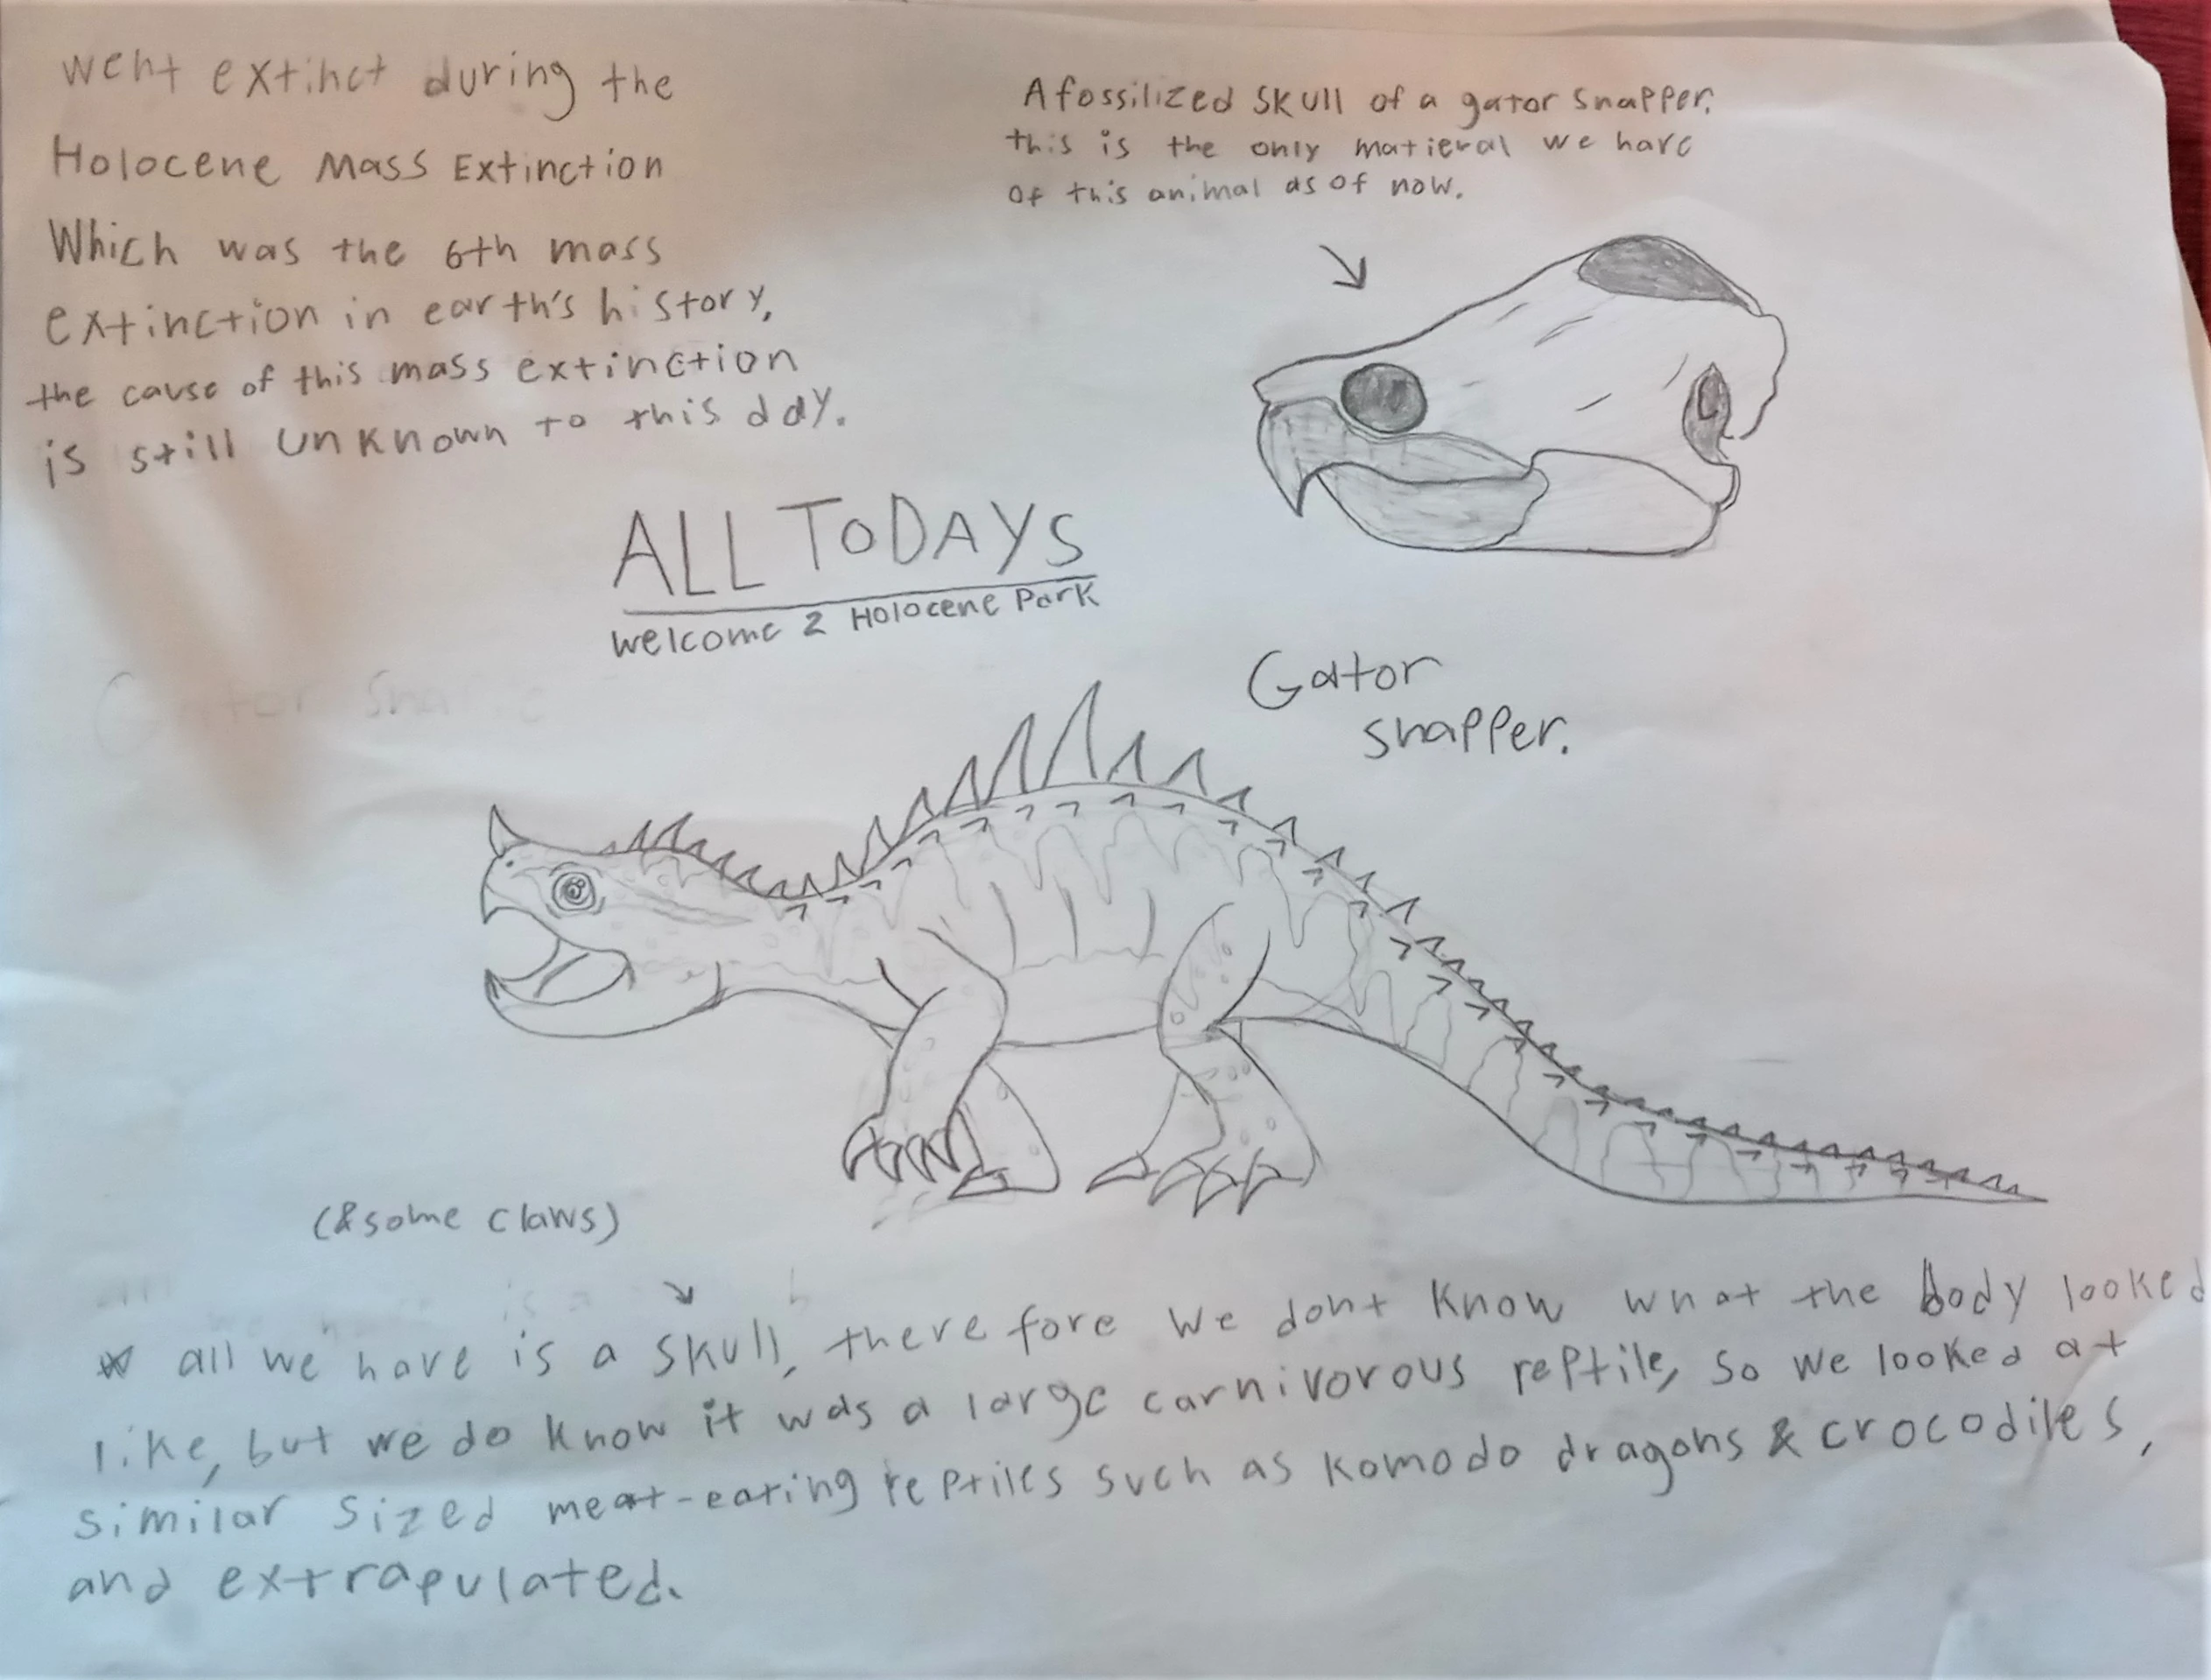 went extinct during the
Holocene Mass Extinction
Which was the 6th mass
extinction in earth's history,
the cause of this mass extinction
is still unknown to this day.
A fossilized skull of a gator snapper.
this is the only matieral we have
of this animal as of now.
ALL TODAYS
welcome 2 Holocene Park
Gator
snapper.
(& some claws)
* all we have is a skull, therefore we dont know what the body looked
like, but we do know it was a large carnivorous reptile, so we looked at
similar sized meat-eating reptiles such as komodo dragons & crocodiles,
and extrapulated.